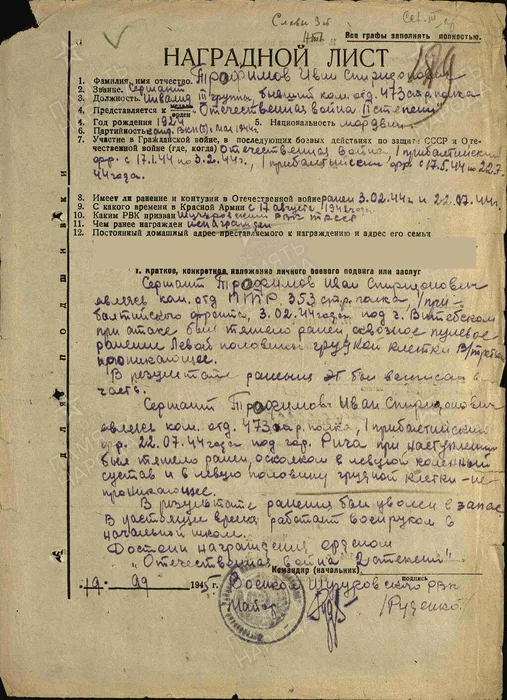 Слави 3 ст
Все графы заполнять полностью.
НАГРАДНОЙ ЛИСТ
1. Фамилия, имя отчество. Трофимов Иван Спиридонович
2. Звание. Сержант
3. Должность. Инвалид III группы бывший ком. отд. 473
4. Представляется к медаль орден Отечественная война II степени
4. Год рождения 1924 5. Национальность мордвин
6. Партийность канд. ВКП(б) 1944г.
7. Участие в Гражданской войне, в последующих боевых действиях по защите СССР и Оте-
чественной войне (где, когда) Отечественная война, 1 прибалтийский
фр. с 17.1.44 по 3.2.44г., 1 прибалтийский фр. с 17.5.44 по 22.7.
44года.
8. Имеет ли ранение и контузии в Отечественной войне ранен 3.02.44г и 22.07.44г.
9. С какого времени в Красной Армии с 17 августа 1942года
10. Каким РВК призван Шугуровский РВК ТАССР
11. Чем ранее награжден не награжден
12. Постоянный домашний адрес преставляемого к награждению и адрес его семьи
1. Краткое, конкретное, изложение личного боевого подвига или заслуг
Сержант Трофимов Иван Спиридонович
являясь ком. отд 353 стр. полка, 1 при-
балтийского фронта, 3.02.44года под г. Витебском
при атаке был тяжело ранен, сквозное пулевое
ранение левой половины грудной клетки
проникающее.
В результате ранения был в
часть.
Сержант Трофимов Иван Спиридонович
являясь ком. отд. 473 полка, 1 прибалтийский
фр. 22.07.44года под гор. Рига при наступлении
был тяжело ранен, осколком в левую коленный
сустав и в левую половину грудной клетки-не-
проникающее.
В результате ранения был уволен в запас.
В настоящее время работает военруком в
начальной школ.
Достоин награждения орденом
"Отечественная война 2 степени".
Командир (начальник)
19 09 1945г. Военком Шугуровского РВК
подпись
Майор /Руденко/
для подшивки